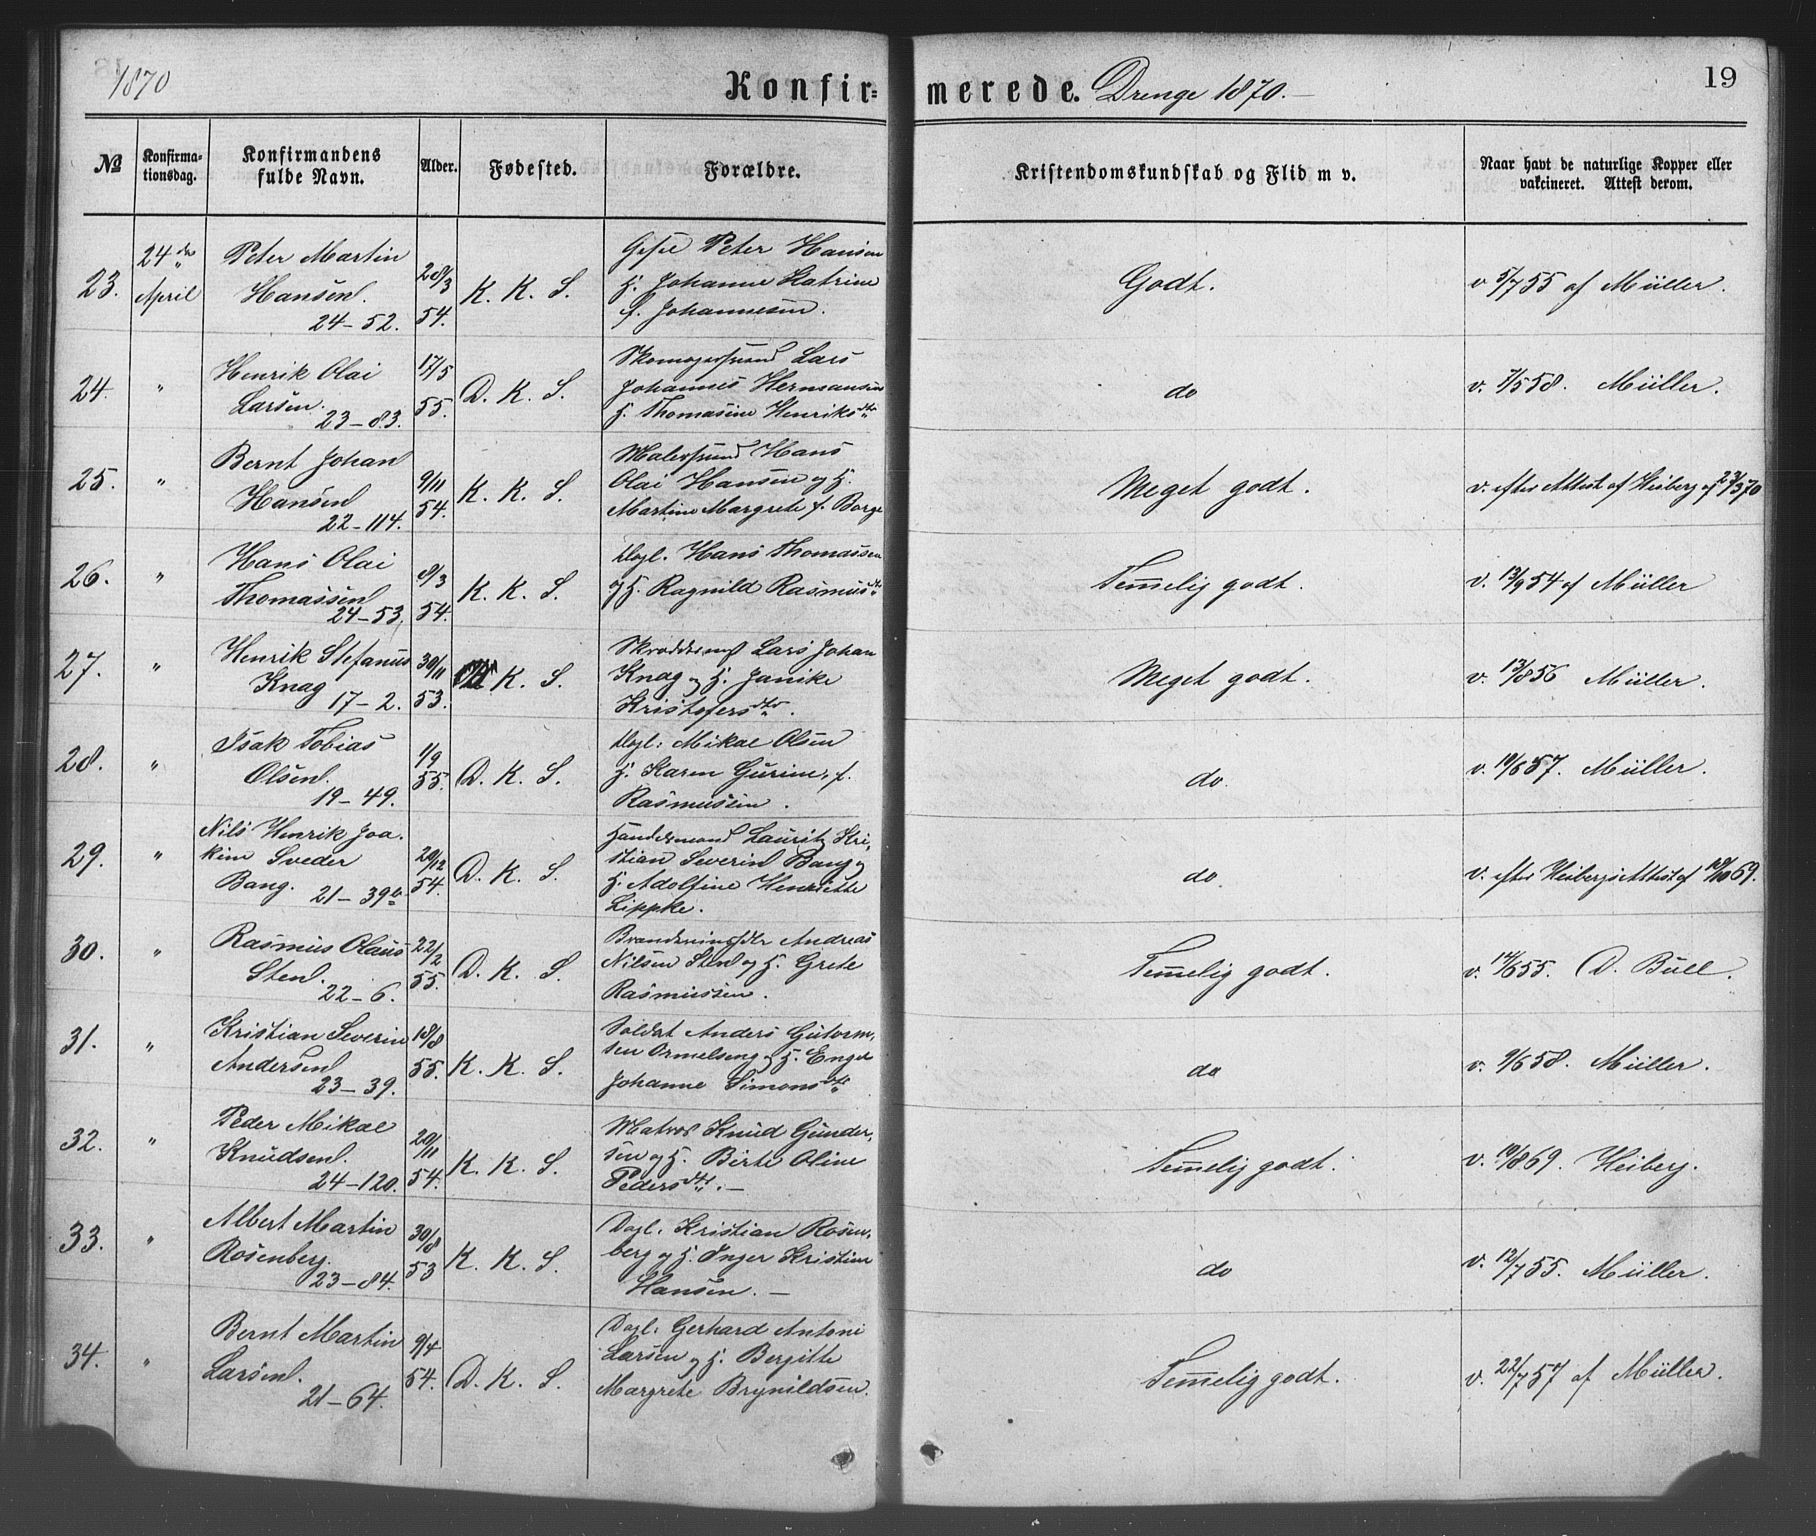 1870
Konfir=
merede. Drenge 1870.—
19
No
Konfirma-
tionsdag.
Konfirmandens
fulde Navn.
Alder.
Fødested.
Forældre.
Kristendomskundskab og Flid m v.
Naar havt de naturlige Kopper eller
vakcineret. Attest derom.
23.
24de
April
Peter Martin
Hansen.
24–52.
28/3
54.
K. K. S.
Peter Hansen
H. Johanne Katrine
f. Johannesen.
Godt.
v 5/7 55 af Müller.
24.
"
Henrik Olai
Larsen.
23–83.
17/5
55.
D. K. S.
Lars
Johannes Hermansen
H. Thomasine Henriksdtr
do
v. 7/5 58. Müller.
25.
"
Bernt Johan
Hansen
22–114.
9/11
54.
K. K. S.
Malersvend Hans
Olai Hansen og H.
Martine Margrete f. Borge
Meget godt.
v. efter Attest af Heiberg af 23/3 70
26.
"
Hans Olai
Thomassen
24–53.
8/3
54.
K. K. S.
Dagl. Hans Thomassen
og H. Ragnild Rasmusdtr
Temmelig godt.
v. 13/9 54 af Müller
27.
"
Henrik Stefanus
Knag
17–2.
30/11
53.
K. S.
Lars Johan
Knag og H. Janike
Kristofersdtr.
Meget godt.
v. 13/8 56 Müller.
28.
"
Isak Tobias
Olsen.
19–49.
1/9
55.
D. K. S.
Dagl. Mikal Olsen
H. Karen Gurine, f.
Rasmussen.
do.
v. 10/6 57. Müller.
29.
"
Nils Henrik Joa.
kim Sveder
Bang.
21–39b
20/12
54.
D. K. S.
Handelsmand Lauritz Kri,
stian Severin Bang og
H. Adolfine Henriette
Lippke.
do
v. efter Heibergs Attest af 10/10 69.
30.
"
Rasmus Olaus
Sten.
22–6.
22/2
55.
D. K. S.
Andreas
Nilsen Sten og H. Grete
Rasmussen.
Temmelig godt.
v. 14/6 55. D. Bull.
31.
"
Kristian Severin
Andersen
23–39.
18/8
55.
K. K. S.
Soldat Anders Gutorm,
sen Ormelseng og H. Engel
Johanne Simonsdtr
do
v. 9/6 58. Müller.
32.
"
Peder Mikal
Knudsen.
24–120.
20/11
54.
K. K. S.
Matros Knud Gunder,
sen og H. Birte Oline
Pedersdtr.–
Temmelig godt.
v. 10/8 69. Heiberg.
33.
"
Albert Martin
Rosenberg.
23–84.
30/8
53
K. K. S.
Dagl. Kristian Rosen,
berg og H. Inger Kristine
Hansen.–
do
v. 12/7 55. Müller.
34.
"
Bernt Martin
Larsen.
21–64.
9/4
54.
D. K. S.
Dagl. Gerhard Antoni
Larsen og H. Bergitte
Margrete Brynildsen.
Temmelig godt.
v. 22/7 57 af Müller.